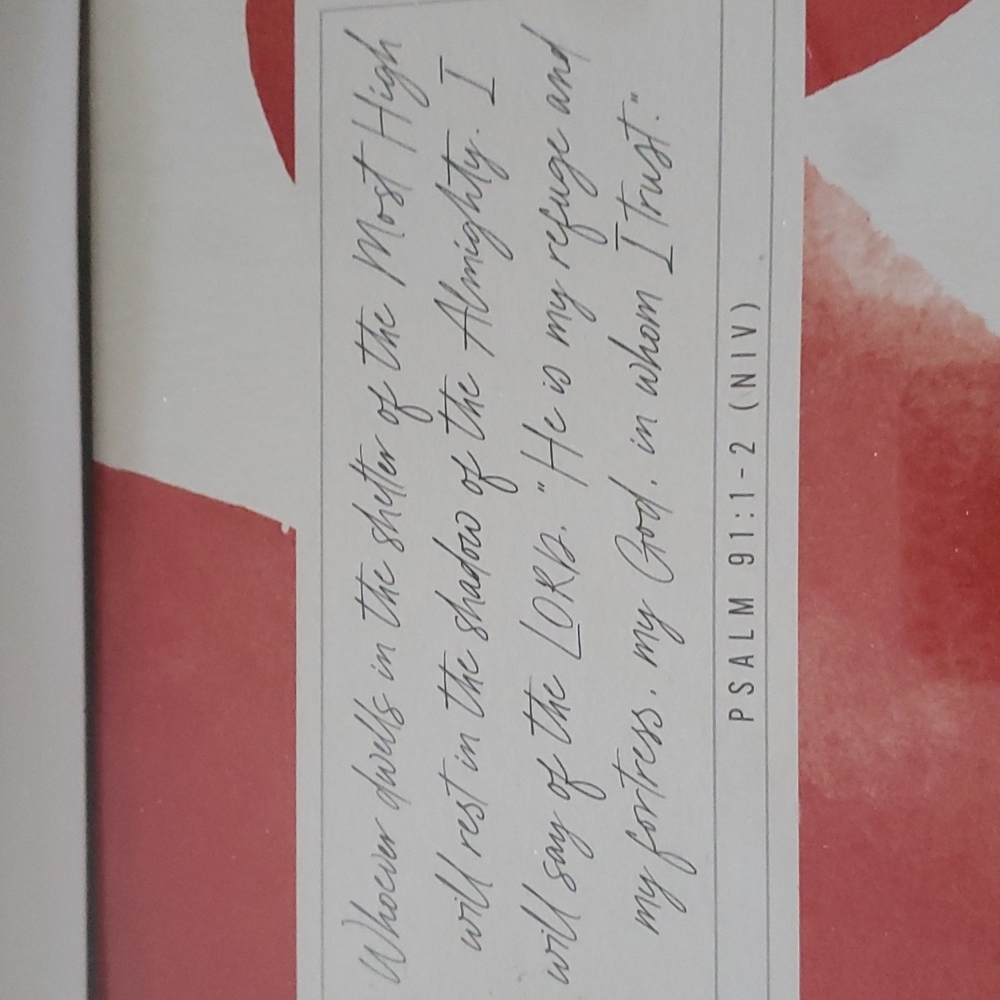 Whoever dwells in the shelter of the Most High
will rest in the shadow of the Almighty. I
will say of the LORD. "He is my refuge and
my fortress. my God. in whom I trust."
PSALM 91:1-2 (NIV)